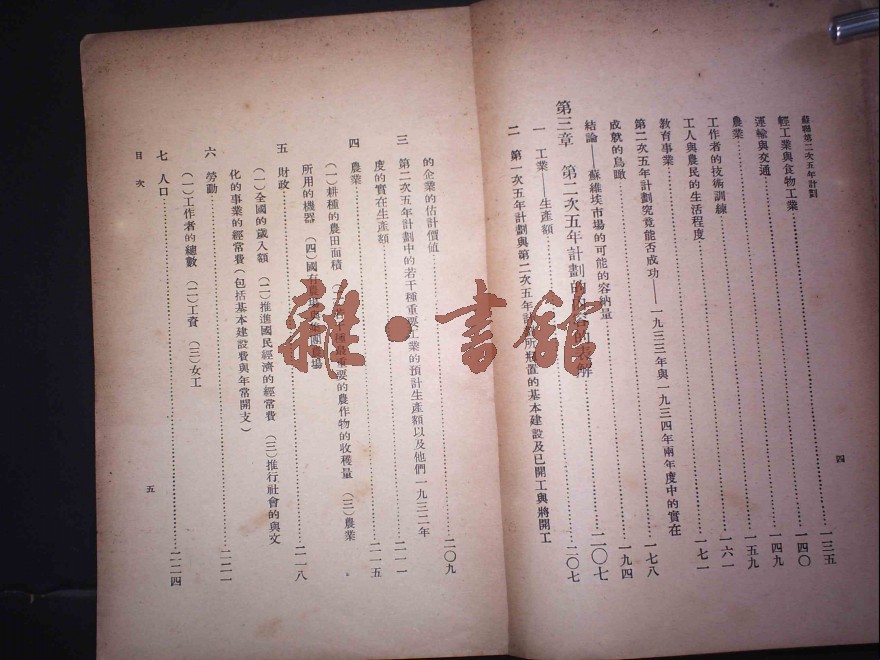 蘇聯第二次五年計劃
四
輕工業與食物工業……一三五
運輸與交通……一四〇
農業……一四九
工作者的技術訓練……一五九
工人與農民的生活程度……一六一
教育事業……一七一
第二次五年計劃究竟能否成功——一九三三年與一九三四年兩年度中的實在
成就的鳥瞰……一七八
結論——蘇維埃市場的可能的容納量……一九四
第三章 第二次五年計劃的內容的圖解……二〇七
一 工業——生產額……二〇七
二 第一次五年計劃與第二次五年計劃所配置的基本建設及已開工與將開工
的企業的估計價値……二〇九
三 第二次五年計劃中的若干種重要工業的預計生產額以及他們一九三二年
度的實在生產額……二一一
四 農業……二一五
(一)耕種的農田面積 (二)若干種最重要的農作物的收穫量 (三)農業
所用的機器 (四)國有農場與集團農場
五 財政……二一八
(一)全國的歲入額 (二)推進國民經濟的經常費 (三)推行社會的與文
化的事業的經常費(包括基本建設費與年常開支)
六 勞動……二二一
(一)工作者的總數 (二)工資 (三)女工
七 人口……二二四
目次
五
雜·書舘